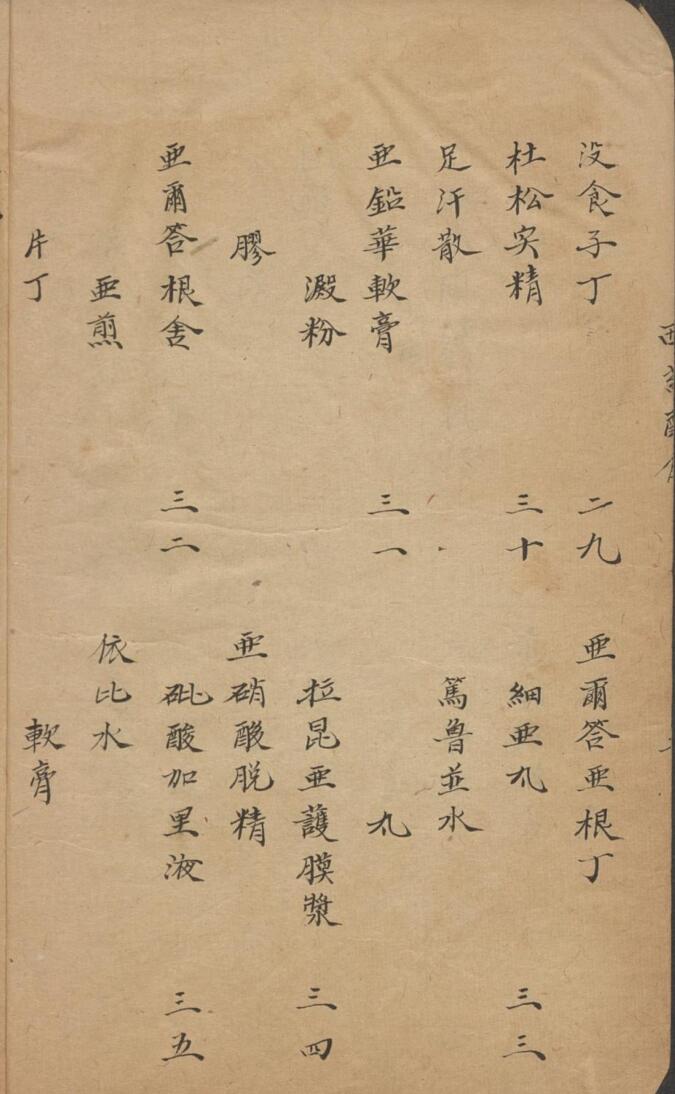 没食子丁 二九
杜松实精 三十
足汗散
亜鉛華軟膏 三一
澱粉
膠
亜爾答根舍 三二
亜煎
片丁
亜爾答亜根丁
細亜丸 三三
篤魯並水
丸
拉昆亜護膜漿 三四
亜硝酸脱精
砒酸加里液 三五
依比水
軟膏